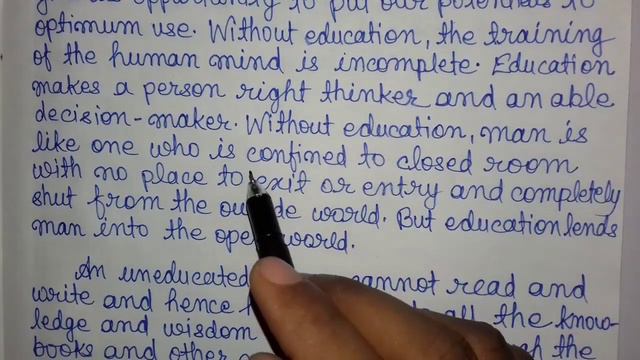 opportunity to put our potentials to
optimum use. Without education, the training
of the human mind is incomplete. Education
makes a person right thinker and an able
decision-maker. Without education, man is
like one who is confined to closed room
with no place to exit or entry and completely
shut from the world. But education lends
man into the open world.
An uneducated cannot read and
write and hence all the know-
ledge and wisdom
books and other the